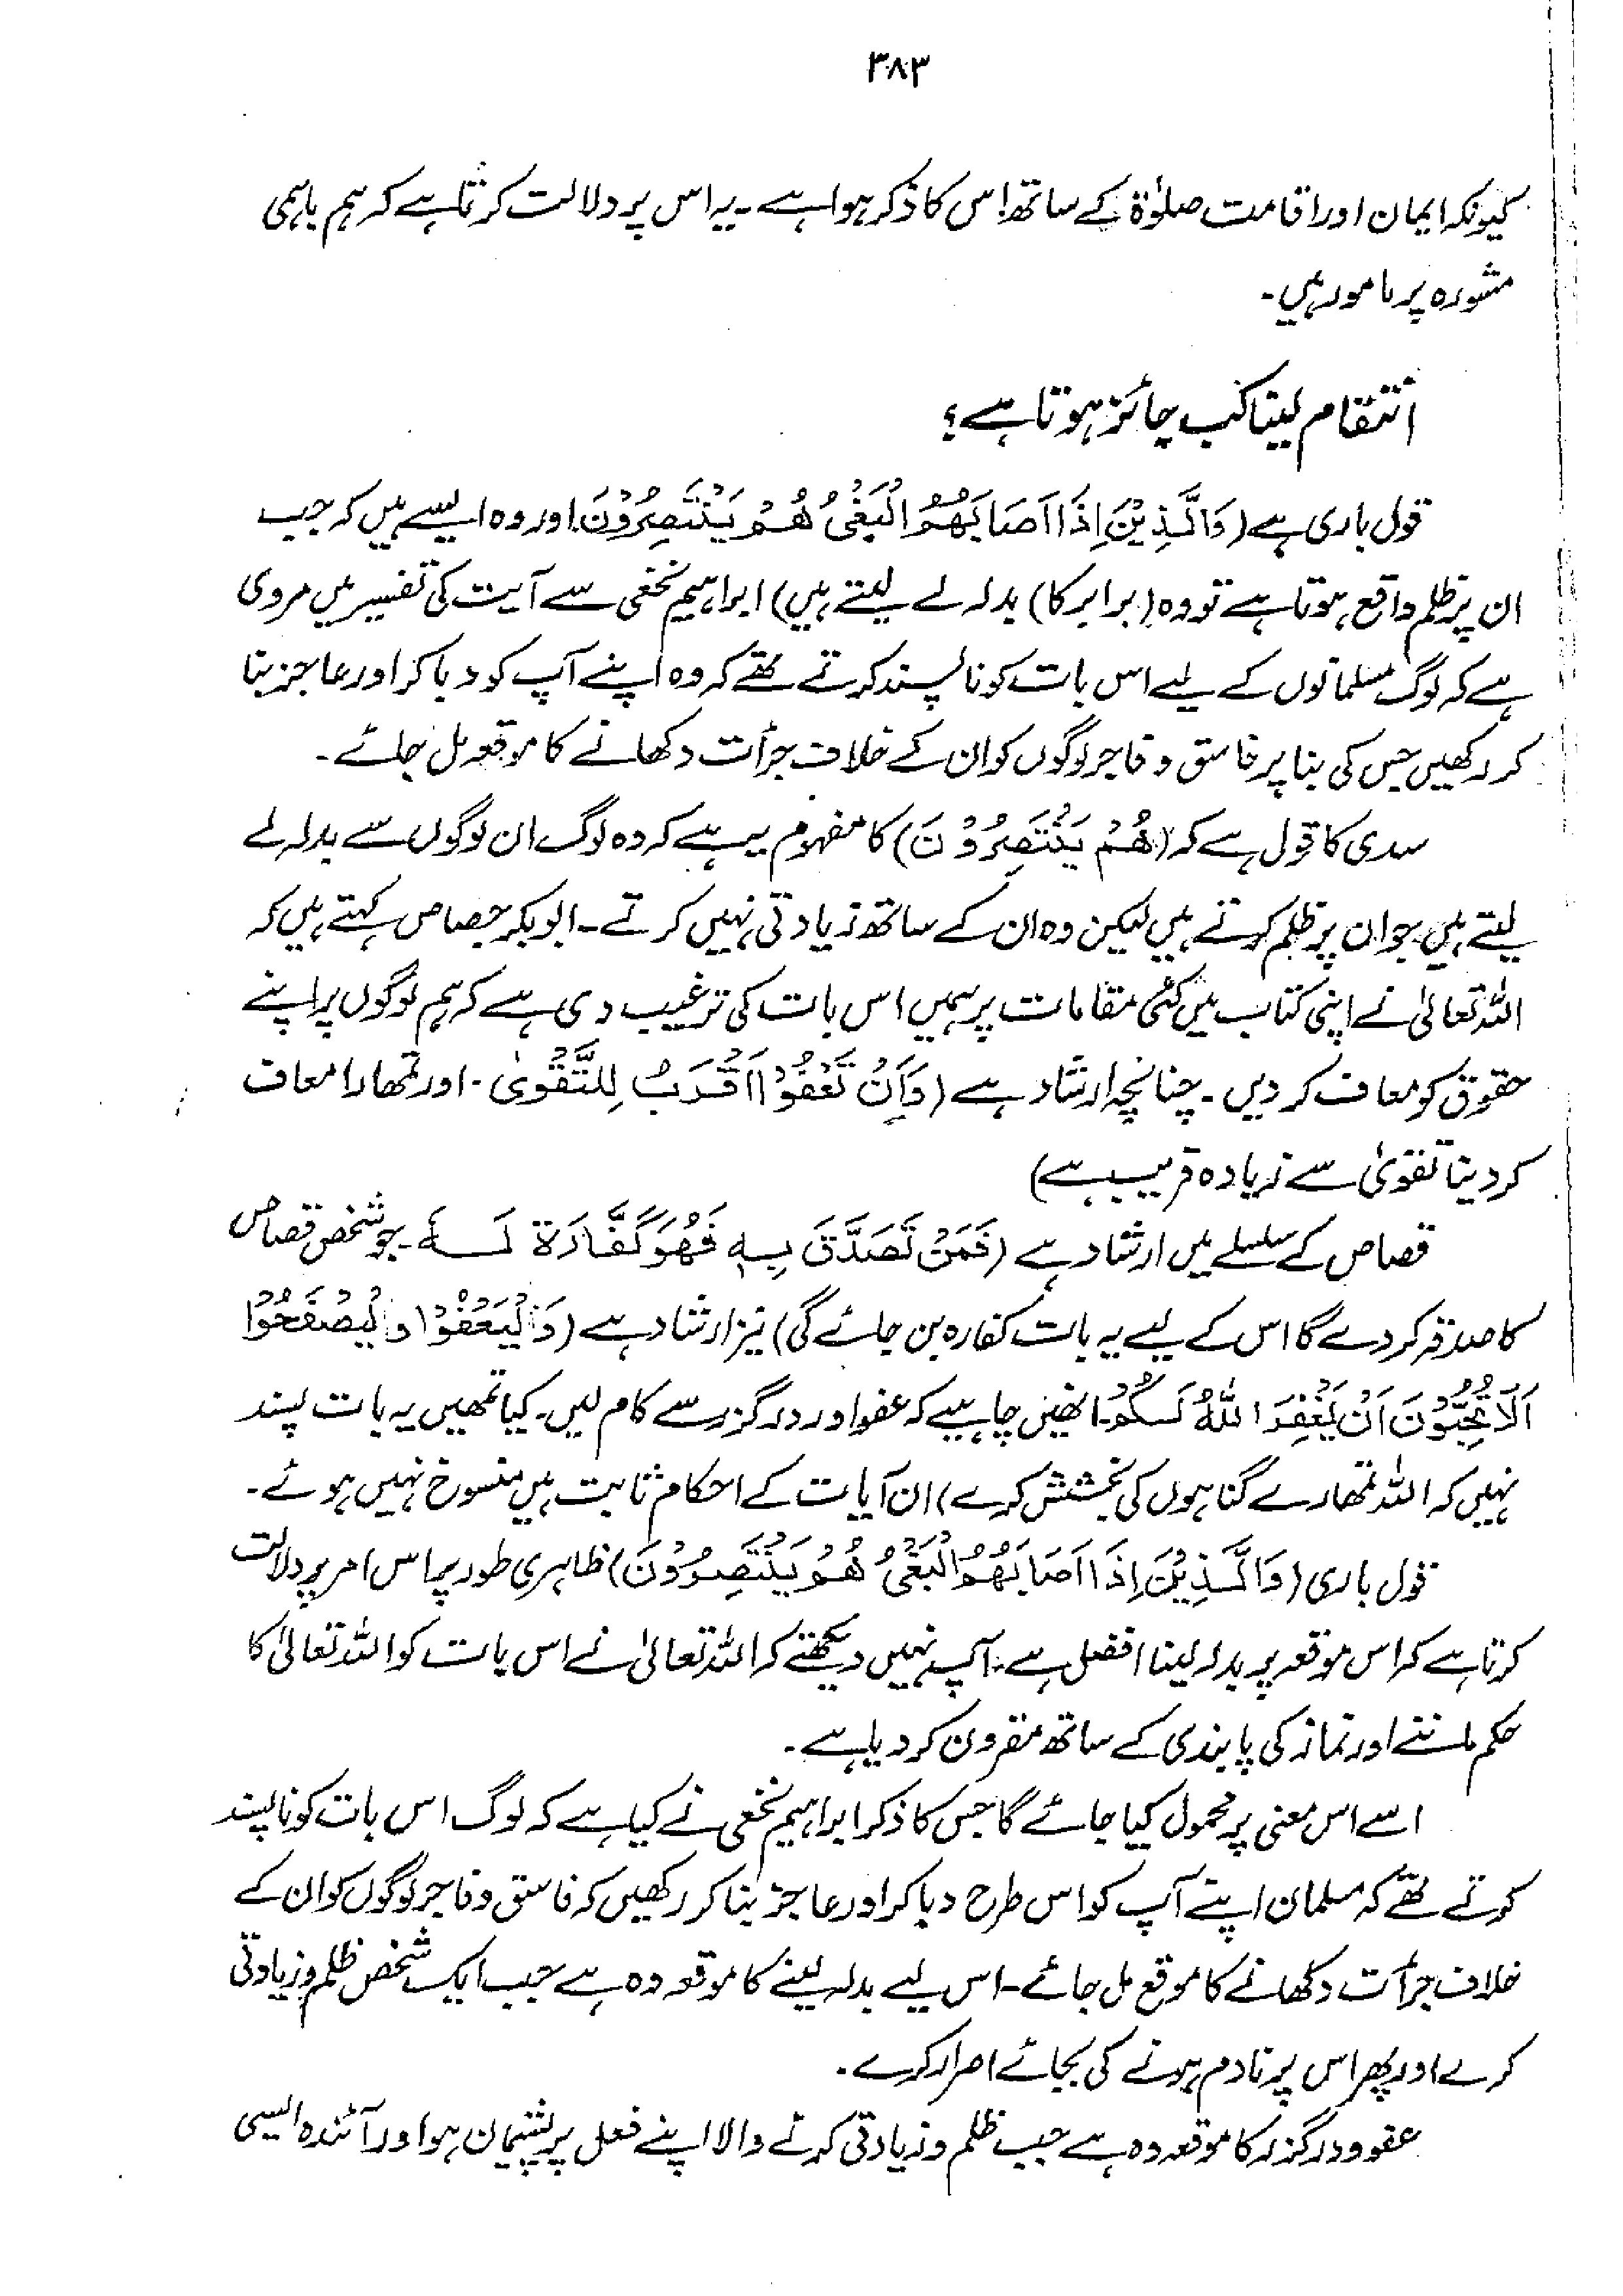 ۳۸۳
کیونکہ ایمان اور اقامت صلوٰۃ کے ساتھ اس کا ذکر ہوا ہے ۔ یہ اس پر دلالت کرتا ہے کہ ہم باہمی
مشورہ پر مامور ہیں ۔
انتقام لینا کب جائز ہوتا ہے؟
قول باری ہے (وَالَّذِيْنَ اِذَا اَصَابَهُمُ الْبَغْىُ هُمْ يَنْتَصِرُوْنَ۔ اور وہ ایسے ہیں کہ جب
ان پر ظلم واقع ہوتا ہے تو وہ (برابر کا) بدلہ لے لیتے ہیں) ابراہیم نخعی سے آیت کی تفسیر میں مروی
ہے کہ لوگ مسلمانوں کے لیے اس بات کو ناپسند کرتے تھے کہ وہ اپنے آپ کو دبا کر اور عاجز بنا
کر رکھیں جس کی بنا پر فاسق و فاجر لوگوں کو ان کے خلاف جرأت دکھانے کا موقعہ مل جائے ۔
سدی کا قول ہے کہ (هُمْ يَنْتَصِرُوْنَ) کا مفہوم یہ ہے کہ وہ لوگ ان لوگوں سے بدلہ لے
لیتے ہیں جو ان پر ظلم کرتے ہیں لیکن وہ ان کے ساتھ زیادتی نہیں کرتے ۔ ابوبکر جصاص کہتے ہیں کہ
اللہ تعالیٰ نے اپنی کتاب میں کئی مقامات پر ہمیں اس بات کی ترغیب دی ہے کہ ہم لوگوں پر اپنے
حقوق کو معاف کر دیں ۔ چنانچہ ارشاد ہے (وَاَنْ تَعْفُوْا اَقْرَبُ لِلتَّقْوٰى ۔ اور تمھارا معاف
کر دینا تقویٰ سے زیادہ قریب ہے)
قصاص کے سلسلے میں ارشاد ہے (فَمَنْ تَصَدَّقَ بِهٖ فَهُوَ كَفَّارَةٌ لَّهٗ ۔ جو شخص قصاص
کا صدقہ کر دے گا اس کے لیے یہ بات کفارہ بن جائے گی) نیز ارشاد ہے (وَلْيَعْفُوْا وَلْيَصْفَحُوْا
اَلَا تُحِبُّوْنَ اَنْ يَّغْفِرَ اللّٰهُ لَكُمْ۔ انھیں چاہیے کہ عفو اور درگزر سے کام لیں۔ کیا تمھیں یہ بات پسند
نہیں کہ اللہ تمھارے گناہوں کی بخشش کرے) ان آیات کے احکام ثابت ہیں منسوخ نہیں ہوئے ۔
قول باری (وَالَّذِيْنَ اِذَا اَصَابَهُمُ الْبَغْىُ هُمْ يَنْتَصِرُوْنَ) ظاہری طور پر اس امر پر دلالت
کرتا ہے کہ اس موقعہ پر بدلہ لینا افضل ہے۔ آپ نہیں دیکھتے کہ اللہ تعالیٰ نے اس بات کو اللہ تعالیٰ کا
حکم ماننے اور نماز کی پابندی کے ساتھ مقرون کر دیا ہے ۔
اسے اس معنی پر محمول کیا جائے گا جس کا ذکر ابراہیم نخعی نے کیا ہے کہ لوگ اس بات کو ناپسند
کرتے تھے کہ مسلمان اپنے آپ کو اس طرح دبا کر اور عاجز بنا کر رکھیں کہ فاسق و فاجر لوگوں کو ان کے
خلاف جرأت دکھانے کا موقع مل جائے ۔ اس لیے بدلہ لینے کا موقعہ وہ ہے جب ایک شخص ظلم و زیادتی
کرے اور پھر اس پر نادم ہونے کی بجائے اصرار کرے ۔
عفو و درگزر کا موقعہ وہ ہے جب ظلم و زیادتی کرنے والا اپنے فعل پر پشیمان ہو اور آئندہ ایسی